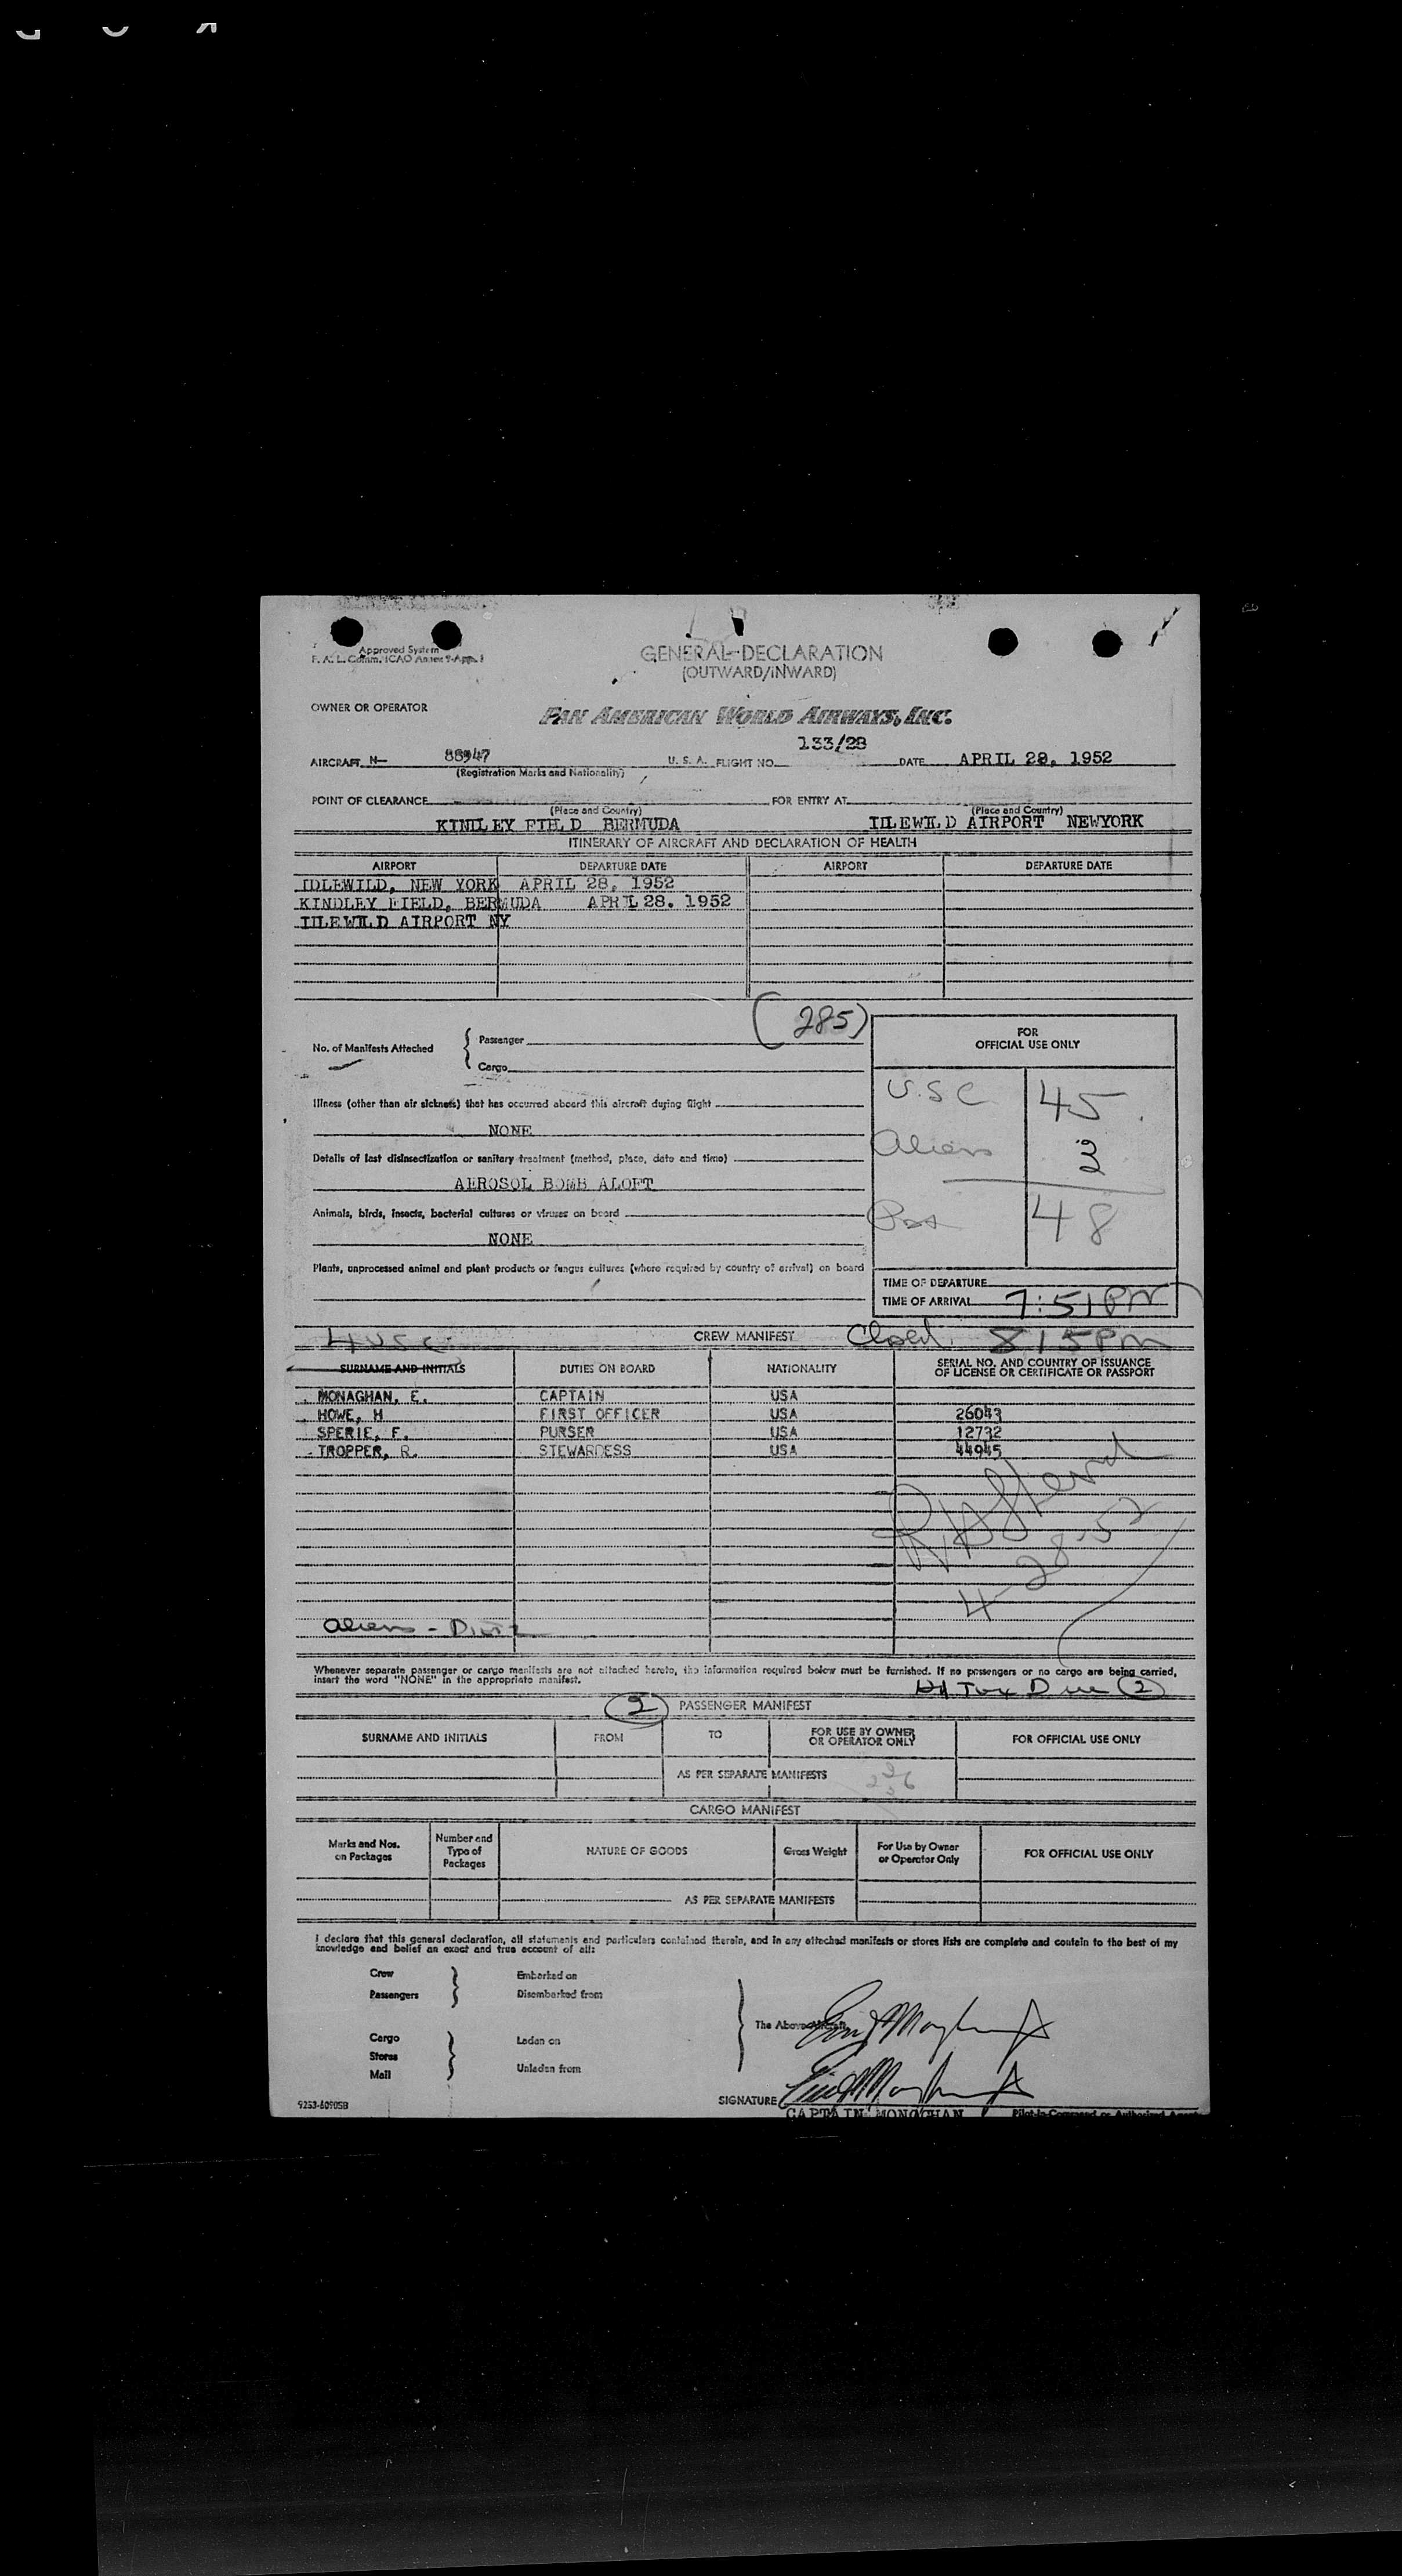 Approved System
F. A. L. Comm. ICAO Annex 9-App. 1
GENERAL DECLARATION
(OUTWARD/INWARD)
OWNER OR OPERATOR
PAN AMERICAN WORLD AIRWAYS, INC.
133/28
AIRCRAFT N— 88947 U. S. A. FLIGHT NO. DATE APRIL 28, 1952
(Registration Marks and Nationality)
POINT OF CLEARANCE FOR ENTRY AT
(Place and Country) (Place and Country)
KINDLEY FIELD BERMUDA IDLEWILD AIRPORT NEWYORK
ITINERARY OF AIRCRAFT AND DECLARATION OF HEALTH
AIRPORT DEPARTURE DATE AIRPORT DEPARTURE DATE
IDLEWILD, NEW YORK APRIL 28, 1952
KINDLEY FIELD, BERMUDA APRIL 28. 1952
IDLEWILD AIRPORT NY
(285)
No. of Manifests Attached
Passenger
Cargo
FOR
OFFICIAL USE ONLY
U.S.C. 45
Aliens 3
48
Illness (other than air sickness) that has occurred aboard this aircraft during flight
NONE
Details of last disinsectization or sanitary treatment (method, place, date and time)
AEROSOL BOMB ALOFT
Animals, birds, insects, bacterial cultures or viruses on board
NONE
Plants, unprocessed animal and plant products or fungus cultures (where required by country of arrival) on board
TIME OF DEPARTURE
TIME OF ARRIVAL 7:51 PM
4 USC CREW MANIFEST Closed 815PM
SURNAME AND INITIALS DUTIES ON BOARD NATIONALITY SERIAL NO. AND COUNTRY OF ISSUANCE
OF LICENSE OR CERTIFICATE OR PASSPORT
MONAGHAN, E. CAPTAIN USA
HOWE, H FIRST OFFICER USA 26043
SPERIE, F. PURSER USA 12732
TROPPER, R. STEWARDESS USA 44945
4-28-52
Aliens -
Whenever separate passenger or cargo manifests are not attached hereto, the information required below must be furnished. If no passengers or no cargo are being carried,
insert the word "NONE" in the appropriate manifest.
Hd Tax Due 2
2 PASSENGER MANIFEST
SURNAME AND INITIALS FROM TO FOR USE BY OWNER
OR OPERATOR ONLY FOR OFFICIAL USE ONLY
AS PER SEPARATE MANIFESTS
CARGO MANIFEST
Marks and Nos.
on Packages Number and
Type of
Packages NATURE OF GOODS Gross Weight For Use by Owner
or Operator Only FOR OFFICIAL USE ONLY
AS PER SEPARATE MANIFESTS
I declare that this general declaration, all statements and particulars contained therein, and in any attached manifests or stores lists are complete and contain to the best of my
knowledge and belief an exact and true account of all:
Crew Embarked on
Passengers Disembarked from
The Above Aircraft
Cargo Laden on
Stores
Mail Unladen from
SIGNATURE
9253-60905B
CAPTAIN MONOGHAN Pilot-in-Command or Authorized Agent